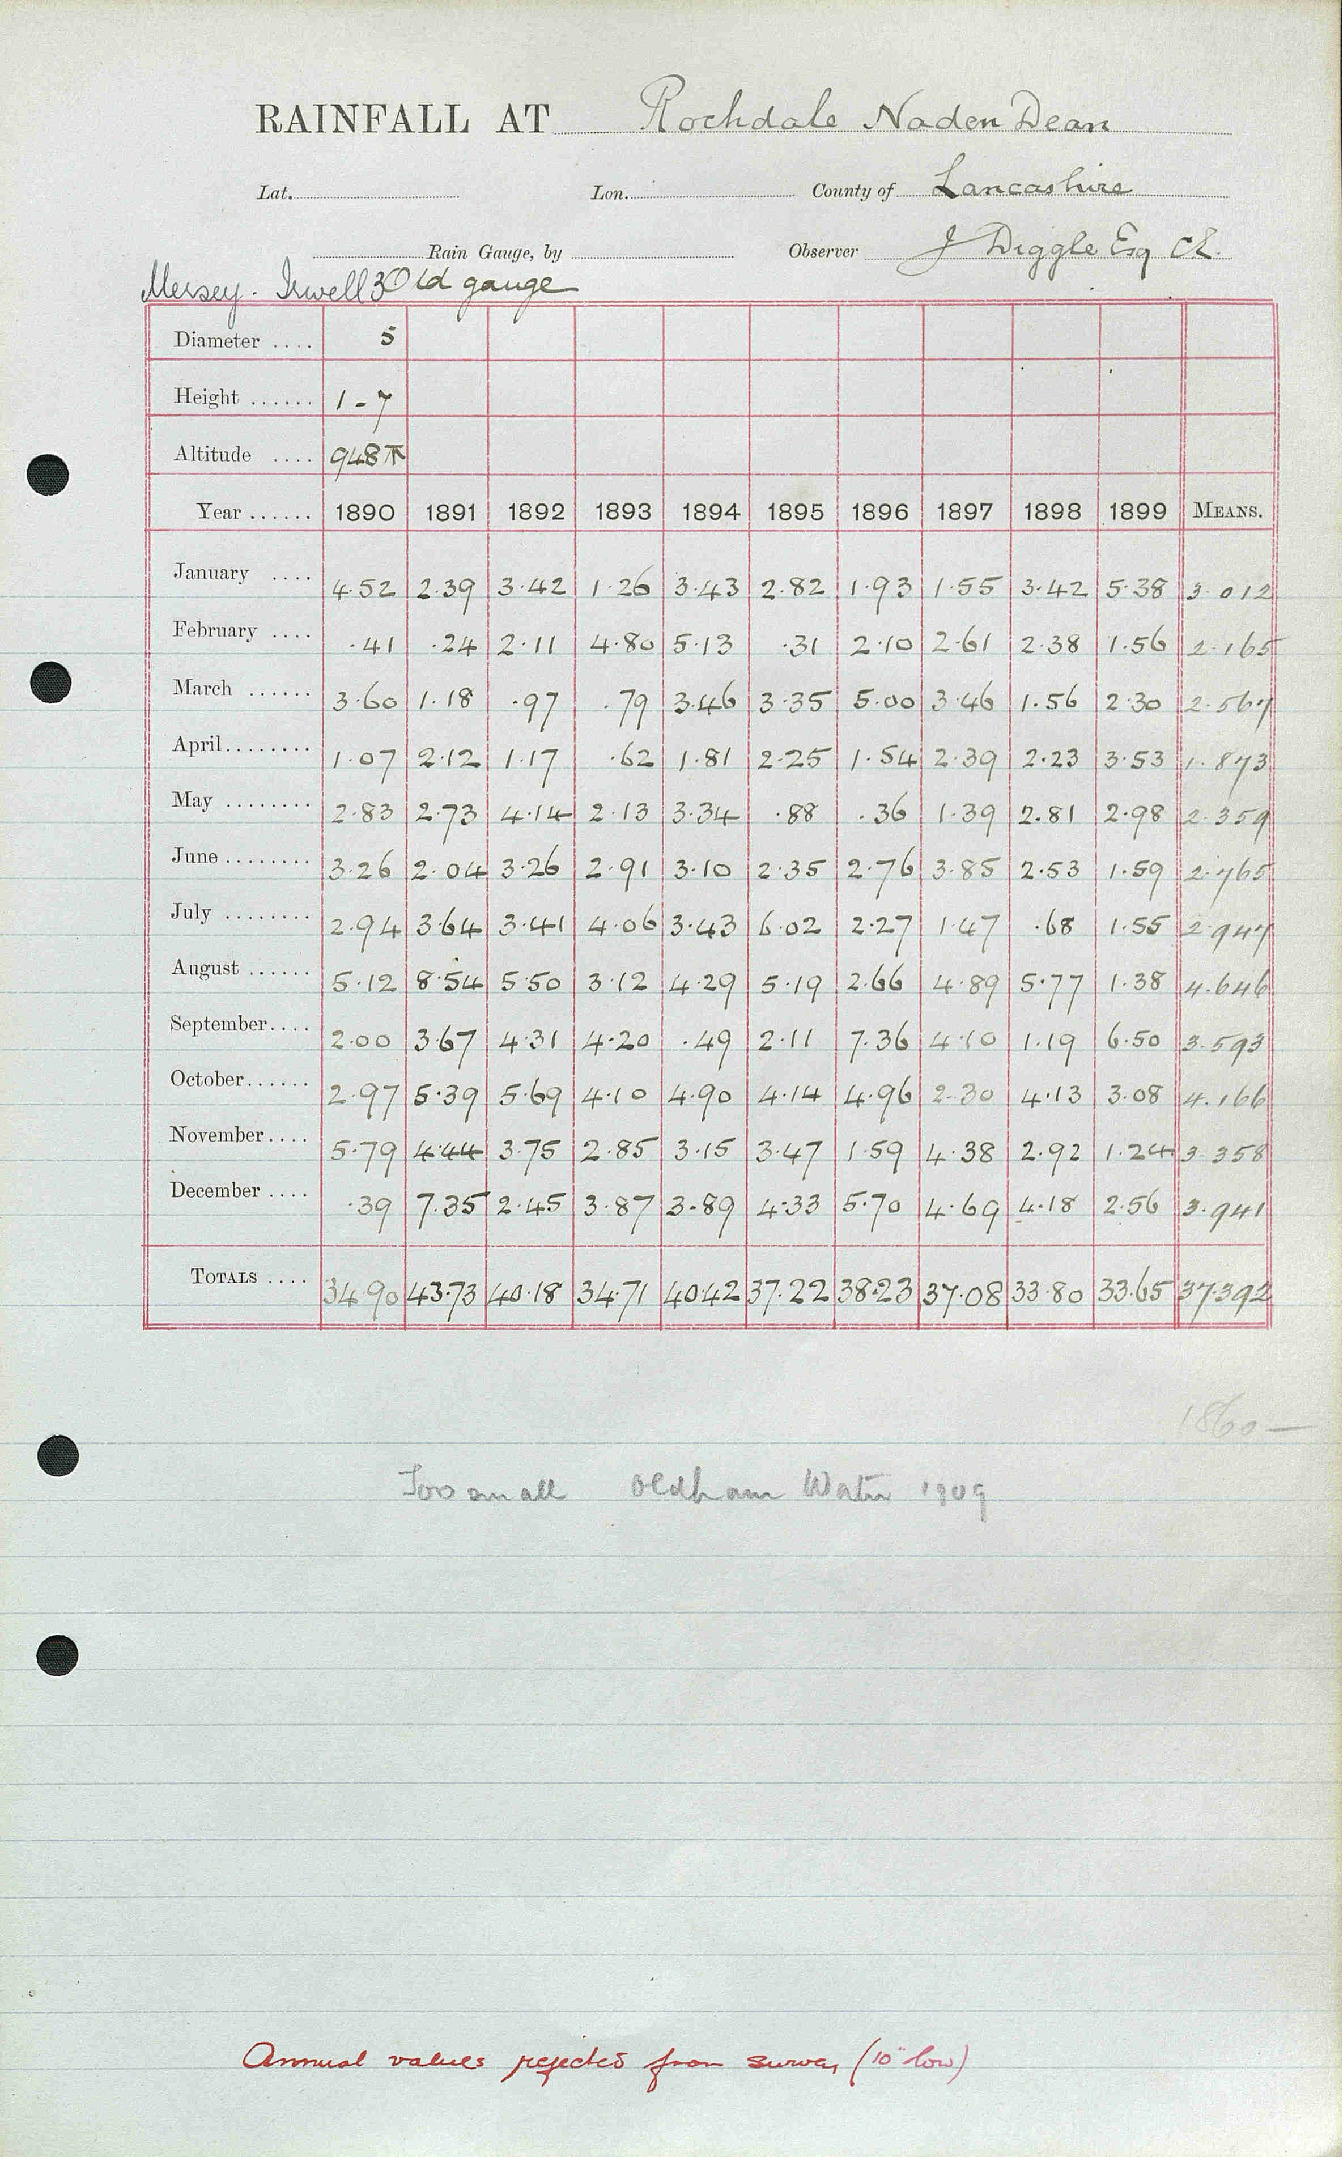 RAINFALL AT Rochdale Naden Dean
Lat. Lon. County of Lancashire
Rain Gauge, by Observer J Diggle Esq CE.
Mersey. Irwell 3 Old gauge
Diameter .... 5
Height ...... 1-7
Altitude .... 948 ft
Year ...... 1890 1891 1892 1893 1894 1895 1896 1897 1898 1899 MEANS.
January .... 4.52 2.39 3.42 1.26 3.43 2.82 1.93 1.55 3.42 5.38 3.012
February .... .41 .24 2.11 4.80 5.13 .31 2.10 2.61 2.38 1.56 2.165
March ...... 3.60 1.18 .97 .79 3.46 3.35 5.00 3.46 1.56 2.30 2.567
April........ 1.07 2.12 1.17 .62 1.81 2.25 1.54 2.39 2.23 3.53 1.873
May ........ 2.83 2.73 4.14 2.13 3.34 .88 .36 1.39 2.81 2.98 2.359
June ........ 3.26 2.04 3.26 2.91 3.10 2.35 2.76 3.85 2.53 1.59 2.765
July ........ 2.94 3.64 3.41 4.06 3.43 6.02 2.27 1.47 .68 1.55 2.947
August ...... 5.12 8.54 5.50 3.12 4.29 5.19 2.66 4.89 5.77 1.38 4.646
September.... 2.00 3.67 4.31 4.20 .49 2.11 7.36 4.10 1.19 6.50 3.593
October...... 2.97 5.39 5.69 4.10 4.90 4.14 4.96 2.30 4.13 3.08 4.166
November.... 5.79 4.44 3.75 2.85 3.15 3.47 1.59 4.38 2.92 1.24 3.358
December .... .39 7.35 2.45 3.87 3.89 4.33 5.70 4.69 4.18 2.56 3.941
TOTALS .... 34.90 43.73 40.18 34.71 40.42 37.22 38.23 37.08 33.80 33.65 37.392
1860—
Too small Oldham Water 1909
Annual values rejected from survey (10" low)